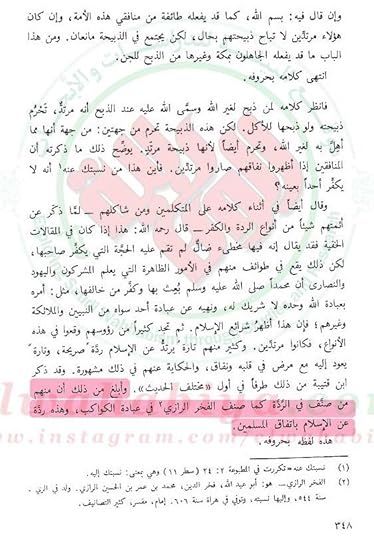 وإن قال فيه: بسم الله، كما قد يفعله طائفة من منافقي هذه الأمة، وإن كان
هؤلاء مرتدّين لا تباح ذبيحتهم بحال، لكن يجتمع في الذبيحة مانعان. ومن هذا
الباب ما قد يفعله الجاهلون بمكة وغيرها من الذبح للجن.
انتهى كلامه بحروفه.
فانظر كلامه لمن ذبح لغير الله وسمَّى الله عليه عند الذبح أنه مرتدٌّ، تَحْرُم
ذبيحته ولو ذبحها للأكل. لكن هذه الذبيحة تحرم من جهتين: من جهة أنها مما
أُهِلَّ به لغير الله، وتحرم أيضاً لأنها ذبيحة مرتدّ. يوضّح ذلك ما ذكرته أن
المنافقين إذا أظهروا نفاقهم صاروا مرتدين. فأين هذا من نسبتك عنه¹ أنه لا
يكفّر أحداً بعينه؟
وقال أيضاً في أثناء كلامه على المتكلمين ومن شاكلهم — لمَّا ذكر عن
أئمتهم شيئاً من أنواع الردة والكفر — قال رحمه الله: هذا إذا كان في المقالات
الخفية فقد يقال إنه فيها مخطىء ضالٌّ لم تقم عليه الحجّة التي يكفّر صاحبها،
لكن ذلك يقع في طوائف منهم في الأمور الظاهرة التي يعلم المشركون واليهود
والنصارى أن محمداً صلى الله عليه وسلم بُعث بها وكفَّر من خالفها، مثل: أمره
بعبادة الله وحده لا شريك له، ونهيه عن عبادة أحد سواه من النبيين والملائكة
وغيرهم؛ فإن هذا أظهرُ شرائع الإسلام. ثم تجد كثيراً من رؤوسهم وقعوا في هذه
الأنواع، فكانوا مرتدّين. وكثير منهم تارة يرتدُّ عن الإسلام ردّة صريحة، وتارة
يعود إليه مع مرض في قلبه ونفاق، والحكاية عنهم في ذلك مشهورة. وقد ذكر
ابن قتيبة من ذلك طرفاً في أول «مختلف الحديث». وأبلغ من ذلك أن منهم
من صنَّف في الرِّدّة كما صنف الفخر الرازي² في عبادة الكواكب، وهذه ردّة
عن الإسلام باتفاق المسلمين.
هذا لفظه بحروفه.
(١) نسبتك عنه = تكررت في المطبوعة ٢: ٢٤ (سطر ١٦) وهي بمعنى: نسبتك إليه.
(٢) الفخر الرازي — هو: أبو عبد الله، فخر الدين، محمد بن عمر بن الحسين الرازي. ولد في الري
سنة ٥٤٤، وإليها نسبته، وتوفي في هراة سنة ٦٠٦. إمام، مفسر، كثير التصانيف.
٣٤٨
www.instagram.com